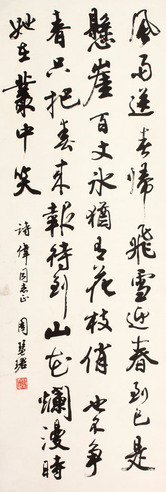 風雨送春歸飛雪迎春到已是
懸崖百丈冰猶有花枝俏也不争
春只把春来報待到山花爛漫時
她在叢中笑
詩偉同志正 周慧珺